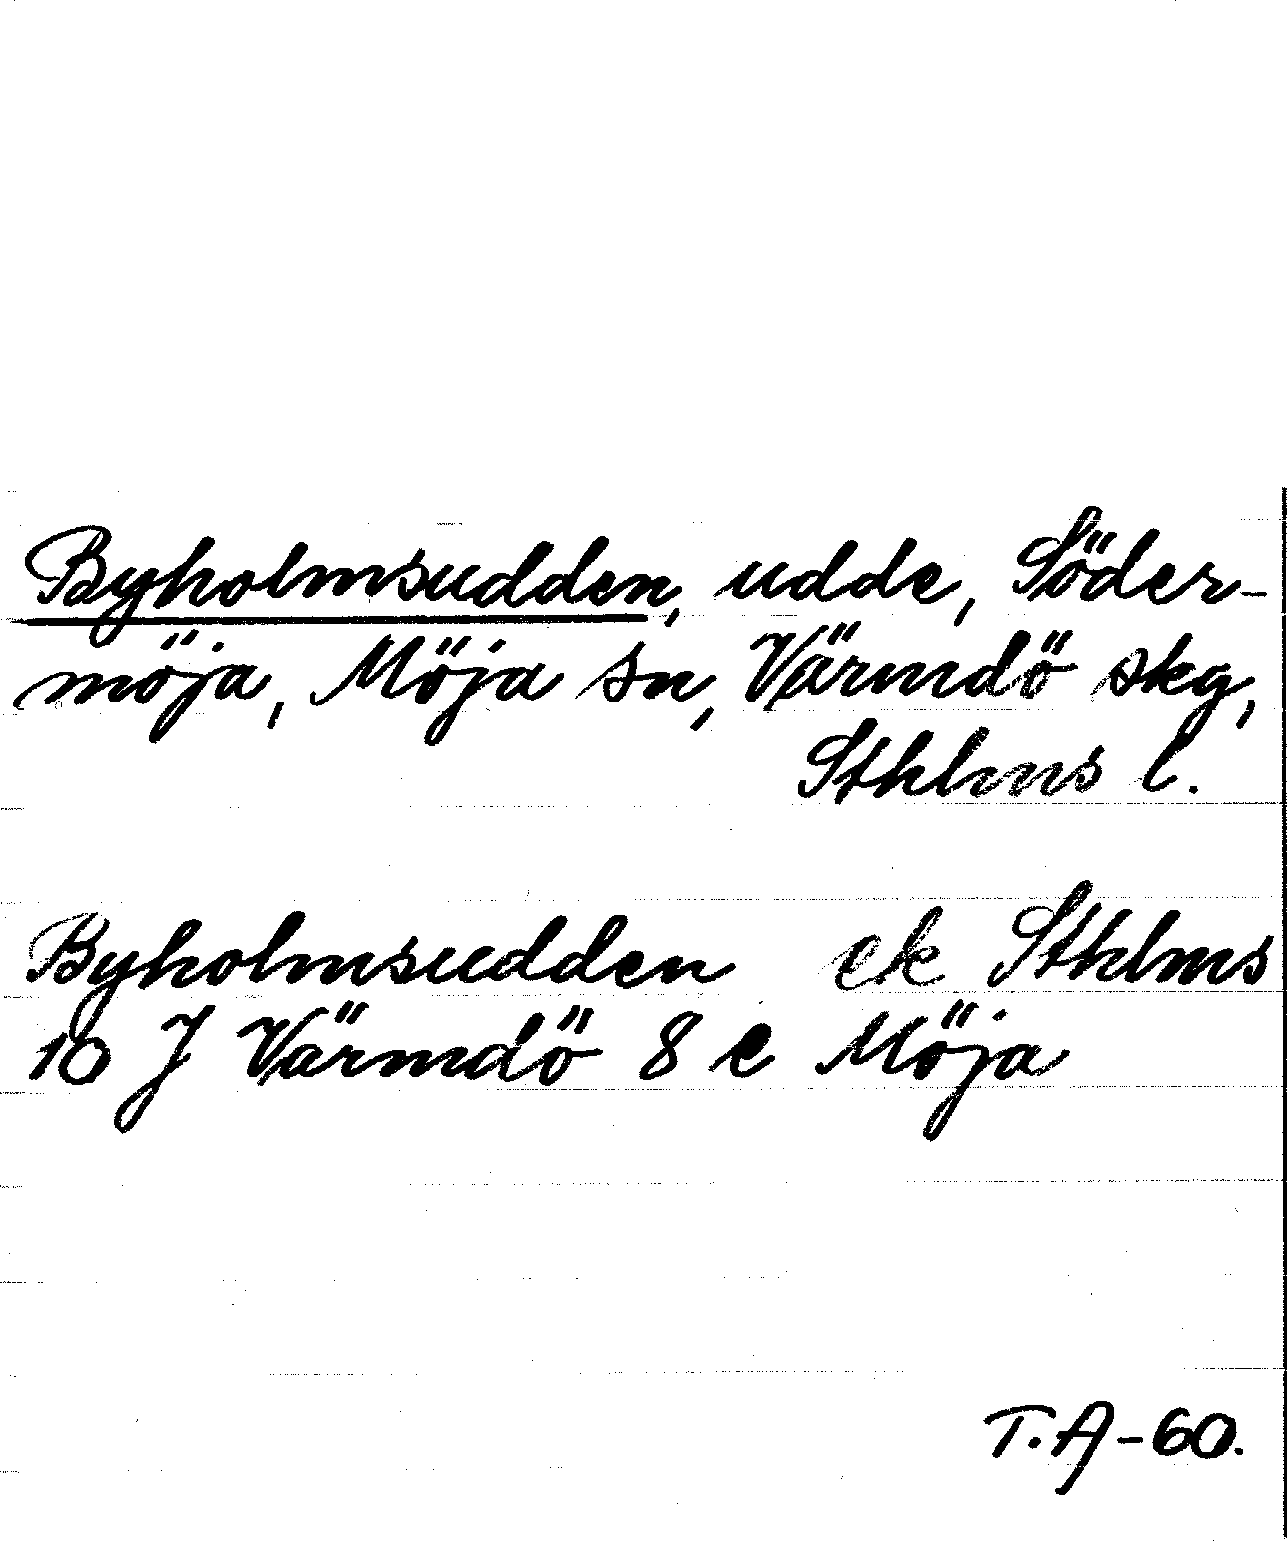 Byholmsudden, udde, Söder-
möja, Möja sn, Värmdö skg,
Sthlms l.
Byholmsudden ek Sthlms
10 J Värmdö 8 e Möja
T.A-60.